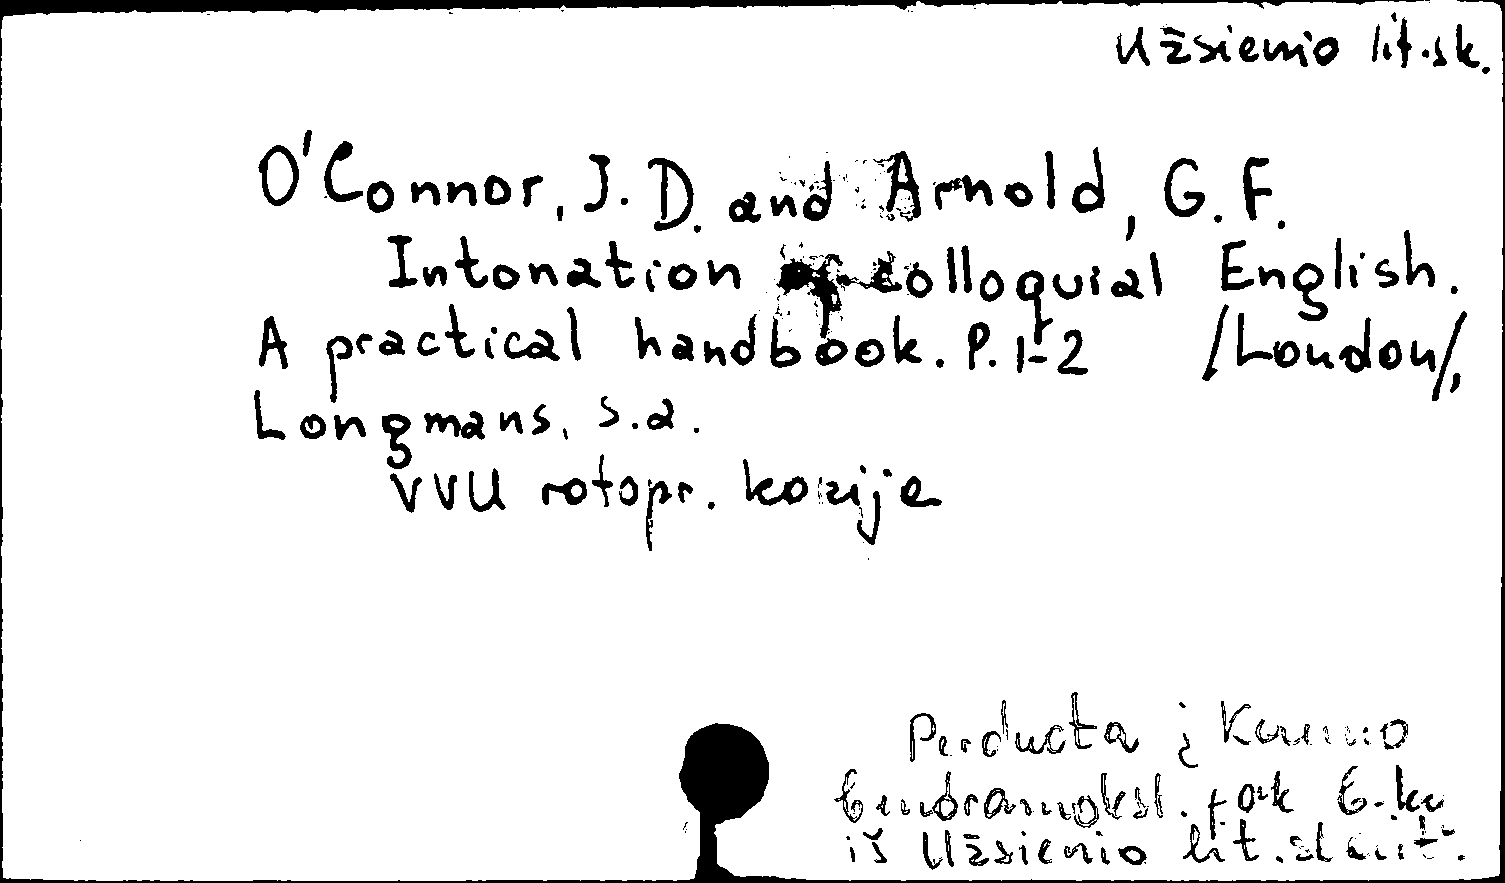 Užsienio lit.sk.
O'Connor, J. D. and Arnold, G. F.
Intonation of colloquial English.
A practical handbook. P. 1-2 /London/,
Longmans, s.a.
VVU rotopr. kopija
Perduota į Kauno
bendramoksl. fak. b-ką
iš Užsienio lit. skait.